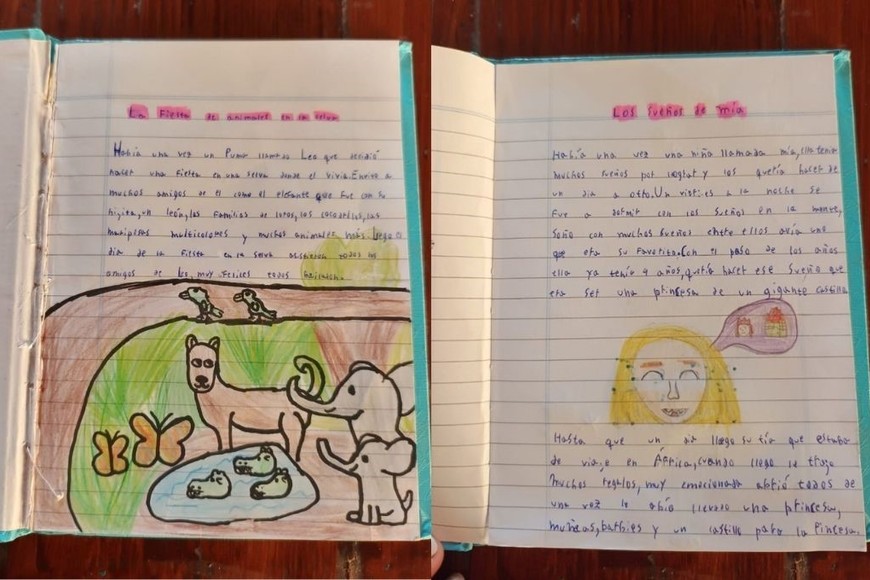 La Fiesta de animales en la selva
Había una vez un Puma llamado Leo que decidió
hacer una Fiesta en una selva donde el vivía. Envivo a
muchos amigos de el como el elefante que fue con su
hijita, un león, las familias de loros, los cocodrilos, las
mariposas multicolores y muchos animales más. Llego el
día de la Fiesta en la selva disfrutaron todos los
amigos de Leo, muy felices todos
Los sueños de mía
Había una vez una niña llamada mía, ella tenía
muchos sueños por lograr y los quería hacer de
un día a otro. Un viernes a la noche se
Fue a dormir con los sueños en la mente,
soño con muchos sueños entre ellos avía uno
que era su favorito. Con el paso de los años
ella ya tenía 9 años, quería hacer ese sueño que
era ser una princesa de un gigante castillo
Hasta que un día llego su tía que estaba
de viaje en África, cuando llego le trajo
muchos regalos, muy emocionada abrió todos de
una vez le abía llevado una princesa,
muñecas, barbies y un castillo para la Princesa.